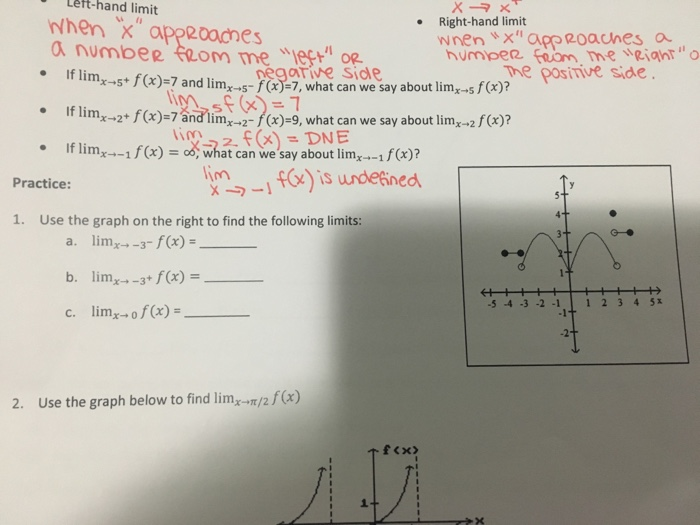 Left-hand limit
x → x⁺
When "x" approaches
a number from the "left" or
negative side
• Right-hand limit
when "x" approaches a
number from the "Right" o
The positive side.
• If limₓ→₅⁺ f(x)=7 and limₓ→₅⁻ f(x)=7, what can we say about limₓ→₅ f(x)?
lim x→5 f(x) = 7
• If limₓ→₂⁺ f(x)=7 and limₓ→₂⁻ f(x)=9, what can we say about limₓ→₂ f(x)?
lim x→2 f(x) = DNE
• If limₓ→₋₁ f(x) = ∞, what can we say about limₓ→₋₁ f(x)?
lim x→-1 f(x) is undefined
Practice:
1. Use the graph on the right to find the following limits:
a. limₓ→₋₃⁻ f(x) = ______
b. limₓ→₋₃⁺ f(x) = ______
c. limₓ→₀ f(x) = ______
y
5
4
3
2
1
-5 -4 -3 -2 -1 1 2 3 4 5 x
-1
-2
2. Use the graph below to find lim x→π/2 f(x)
f(x)
1
x